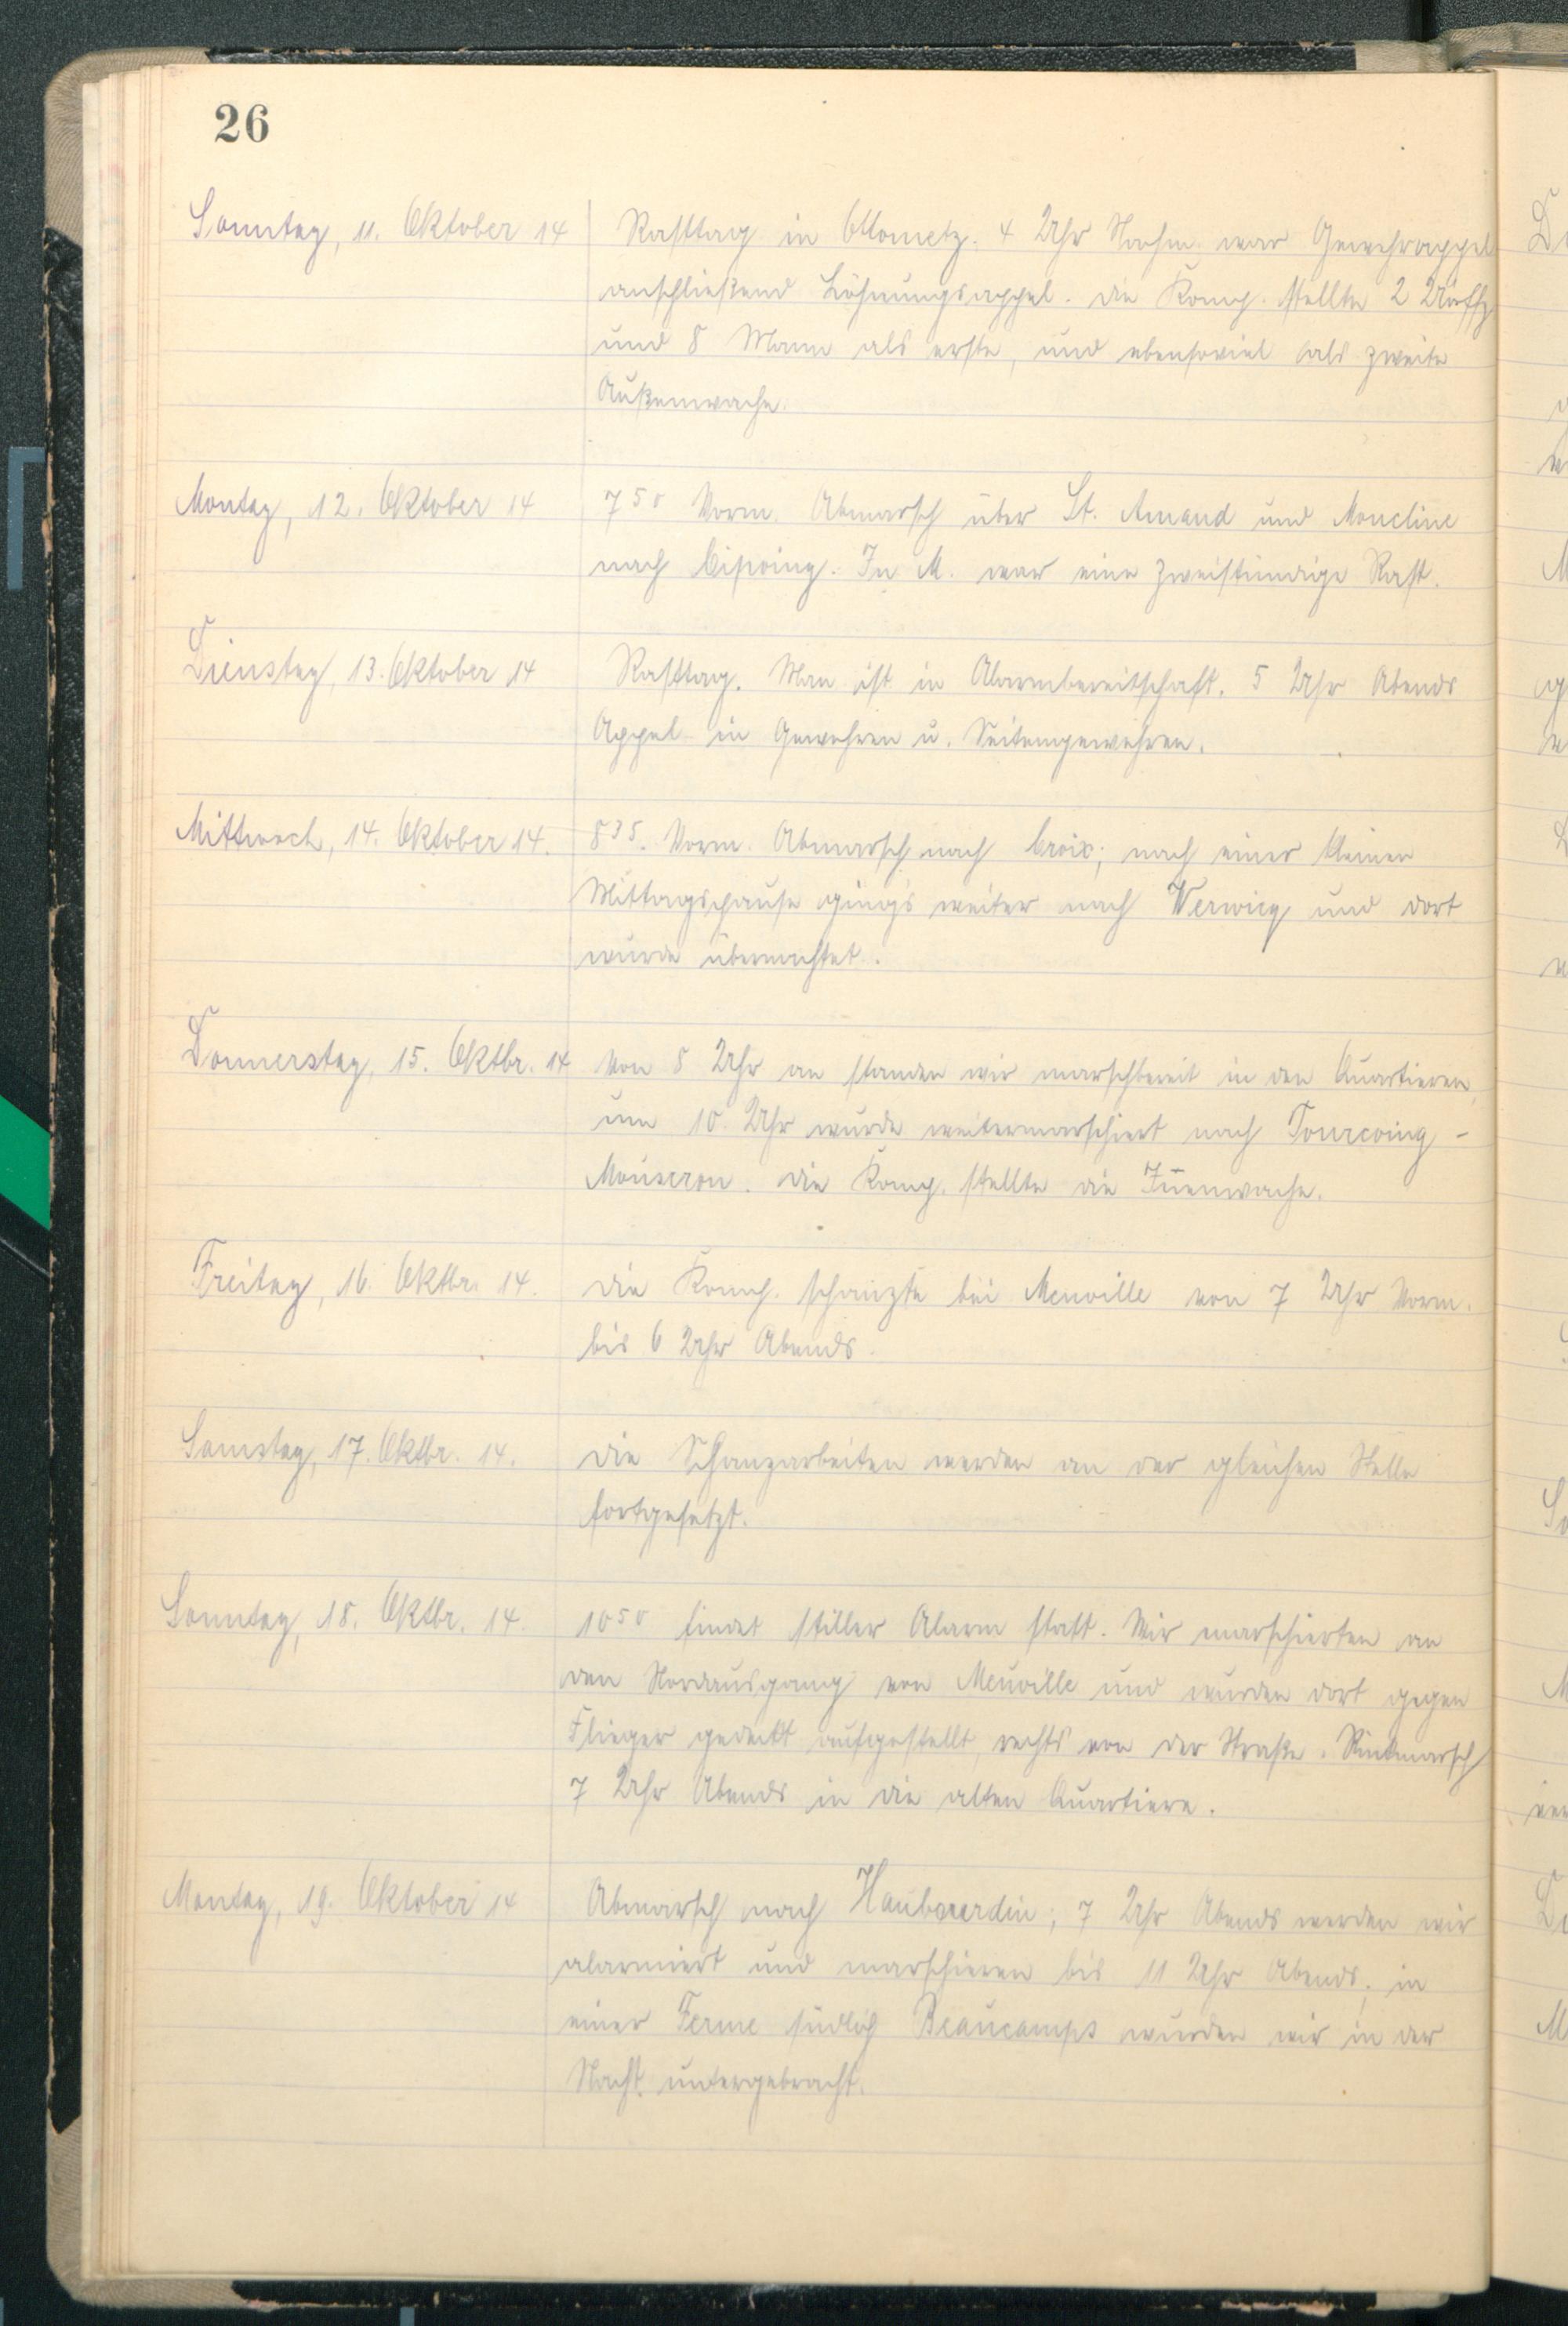 26
Sonntag, 11. Oktober 14
Rasttag in Ottometz. 4 Uhr Nachm. war Gewehrappel
anschließend Löhnungsappel. Die Komp. stellte 2 Uoffz
und 8 Mann als erste, und ebensoviel als zweite
Außenwache.
Montag, 12. Oktober 14
7 50 Vorm. Abmarsch über St. Amand und Moncline
nach Cisoing. In M. war eine zweistündige Rast.
Dienstag, 13. Oktober 14
Rasttag. Man ist in Alarmbereitschaft. 5 Uhr Abends
Appel in Gewehren u. Seitengewehren.
Mittwoch, 14. Oktober 14.
8 35. Vorm. Abmarsch nach Croix; nach einer kleinen
Mittagspause ging's weiter nach Verwicq und dort
wurde übernachtet.
Donnerstag, 15. Oktbr. 14
Von 8 Uhr an standen wir marschbereit in den Quartieren,
um 10 Uhr wurde weitermarschiert nach Tourcoing -
Mouscron. Die Komp. stellte die Iñenwache.
Freitag, 16. Oktbr. 14.
Die Komp. schanzte bei Neuville von 7 Uhr Vorm.
bis 6 Uhr Abends.
Samstag, 17. Oktbr. 14.
Die Schanzarbeiten werden an der gleichen Stelle
fortgesetzt.
Sonntag, 18. Oktbr. 14.
10 50 findet stiller Alarm statt. Wir marschierten an
den Nordausgang von Neuville und wurden dort gegen
Flieger gedeckt aufgestellt, rechts von der Straße. Rückmarsch
7 Uhr Abends in die alten Quartiere.
Montag, 19. Oktober 14
Abmarsch nach Haubourdin; 7 Uhr Abends werden wir
alarmiert und marschieren bis 11 Uhr Abends; in
einer Ferme südlich Beaucamps wurden wir in der
Nacht untergebracht.